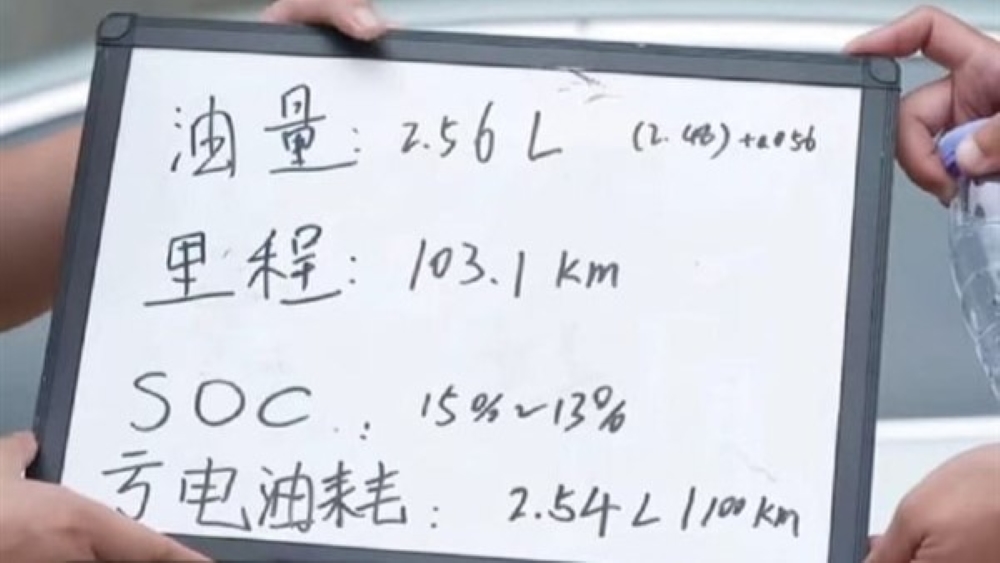 油量: 2.56 L (2.48)+0.056
里程: 103.1 km
SOC: 15%~13%
亏电油耗: 2.54L/100km